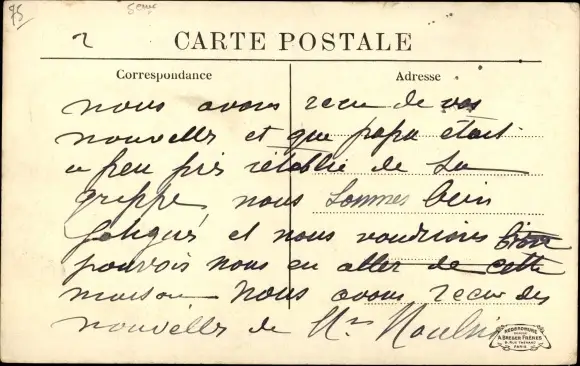 75
5eme
2
CARTE POSTALE
Correspondance
Adresse
nous avons recu de vos
nouvelles et que papa était
a peu pris rétablie de sa
grippe nous sommes bien
fatigués et nous voudrions bien
pouvois nous en aller de cette
maison nous avons recu des
nouvelles de Mr
A. BREGER FRÈRES
PARIS